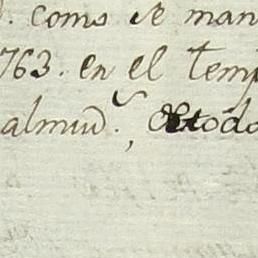 . como se man
763. en el Temp
almud.